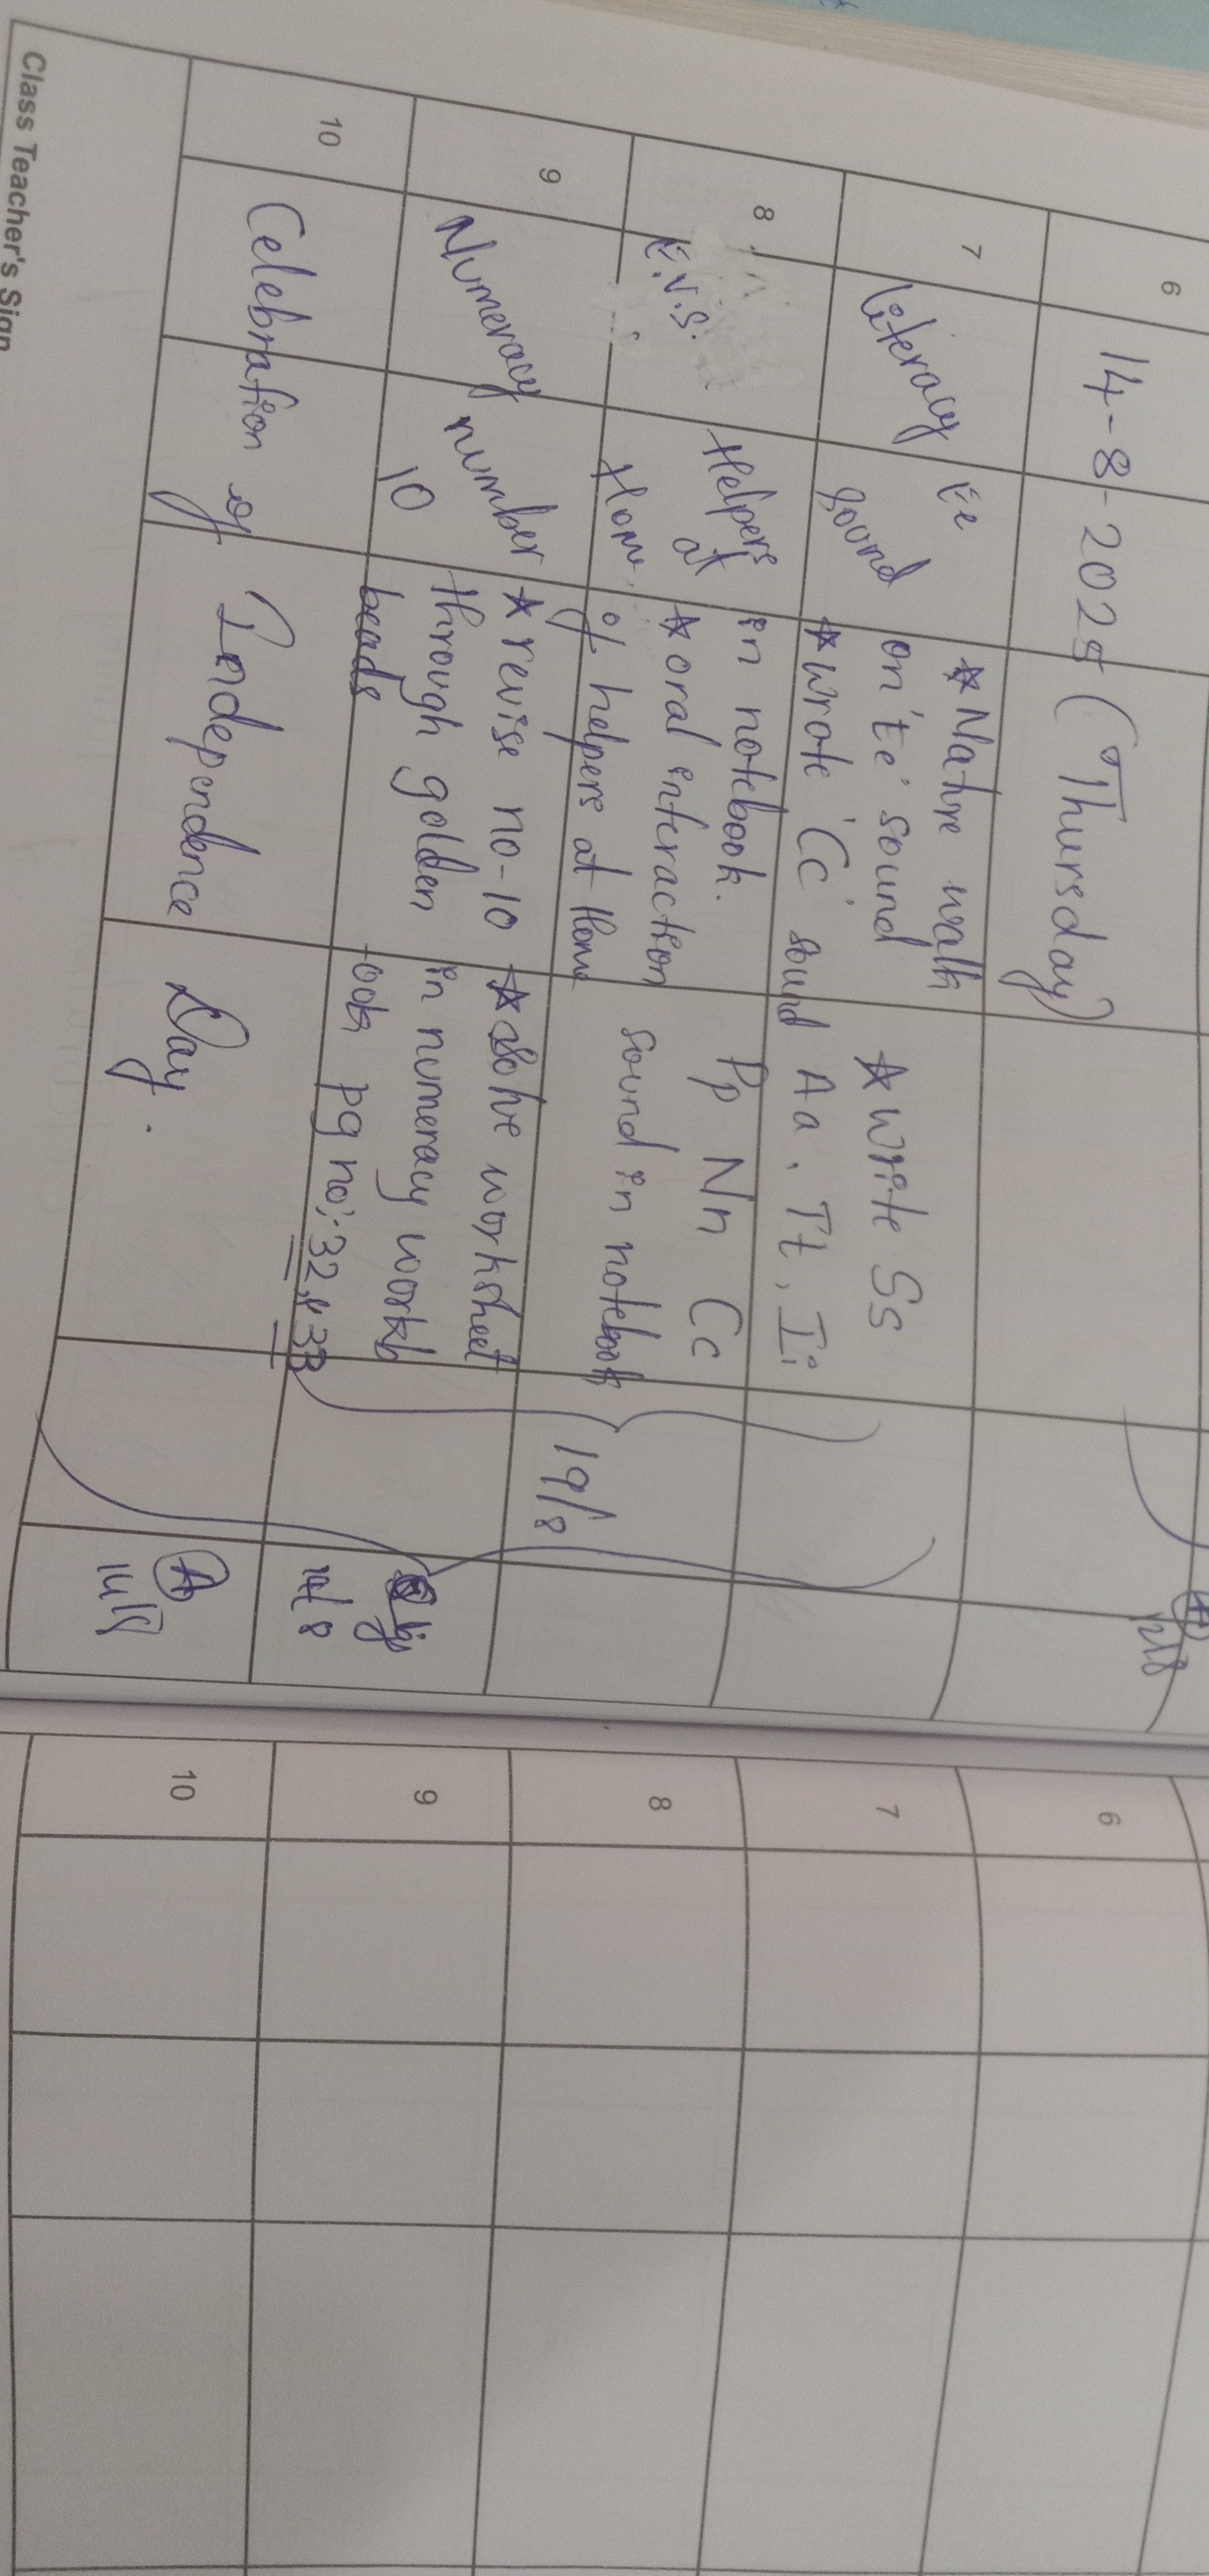 6
14-8-2025 (Thursday)
7
Literacy
Ee
sound
*Nature walk
on 'Ee' sound
*wrote 'Cc' sound
in notebook.
*write Ss
Aa, Tt, Ii
Pp Nn Cc
sound in notebook
8
E.V.S.
Helpers
at
Home.
*oral interaction
of helpers at Home
9
Numeracy
number
10
*revise no-10
through golden
beads
*solve worksheet
in numeracy workb
-ook pg no:-32, & 33
19/8
14/8
10
Celebration of Independence Day.
14/8
Class Teacher's Sign
6
7
8
9
10